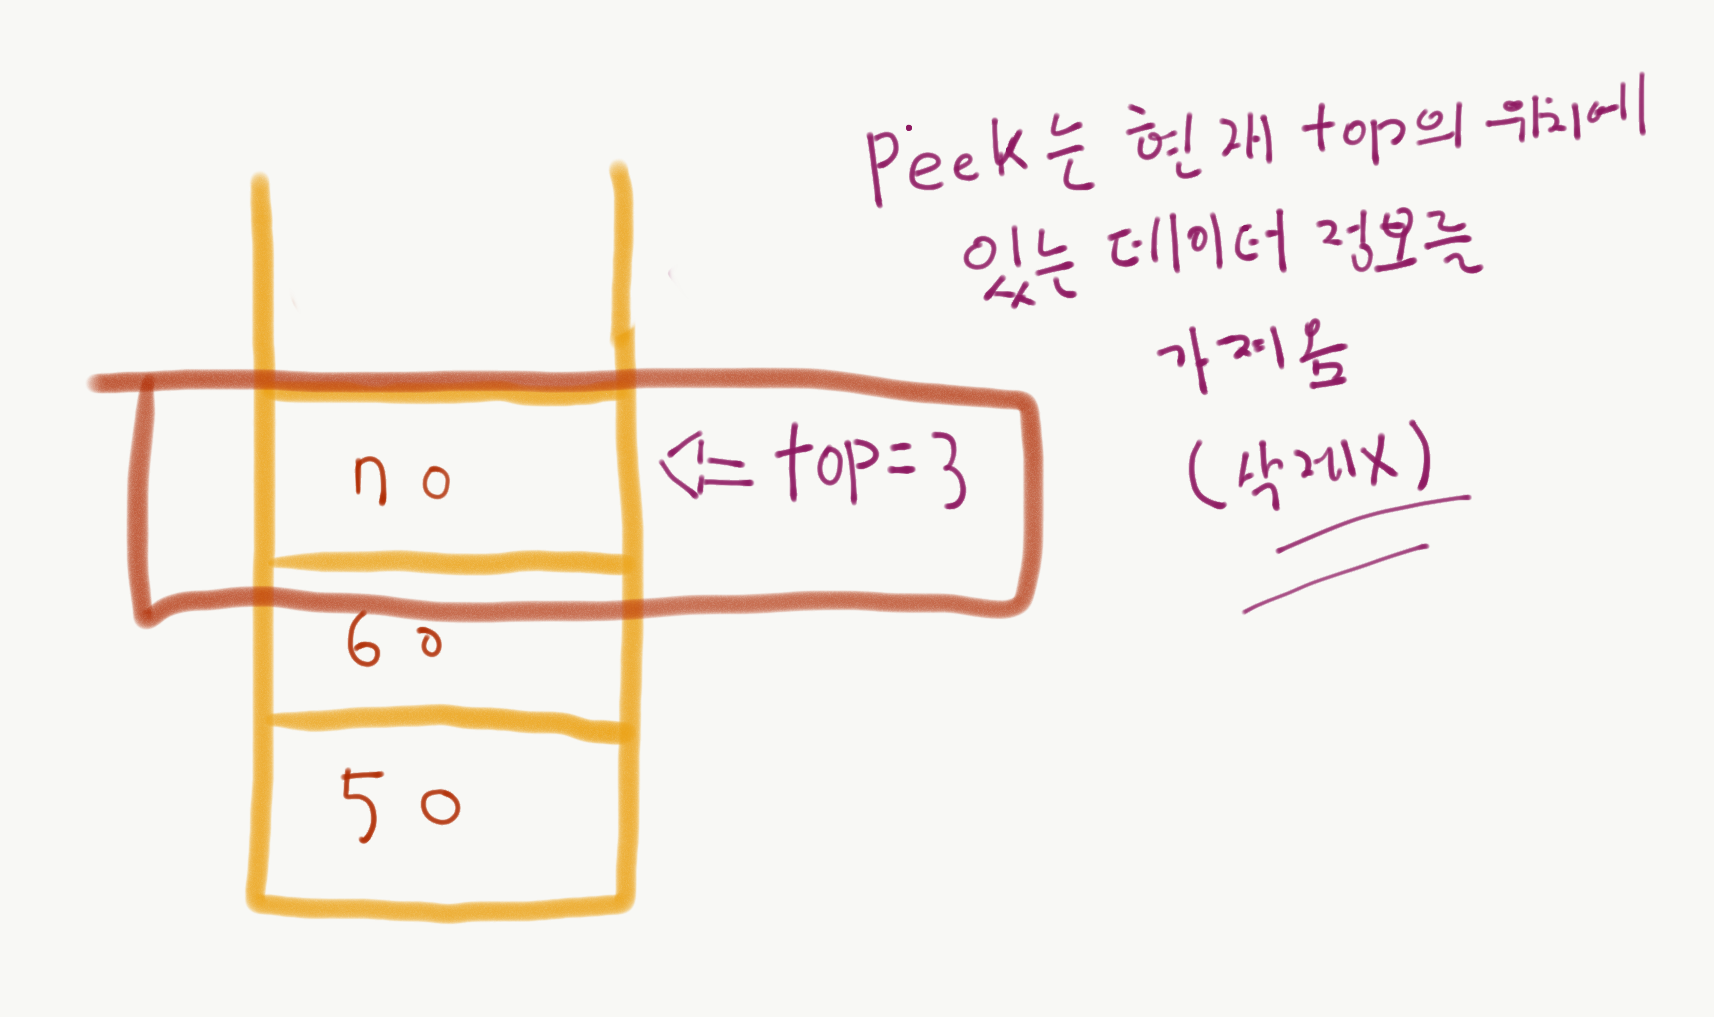 peek는 현재 top의 위치에
있는 데이터 정보를
가져옴
(삭제X)
70
⇐ top=3
60
50